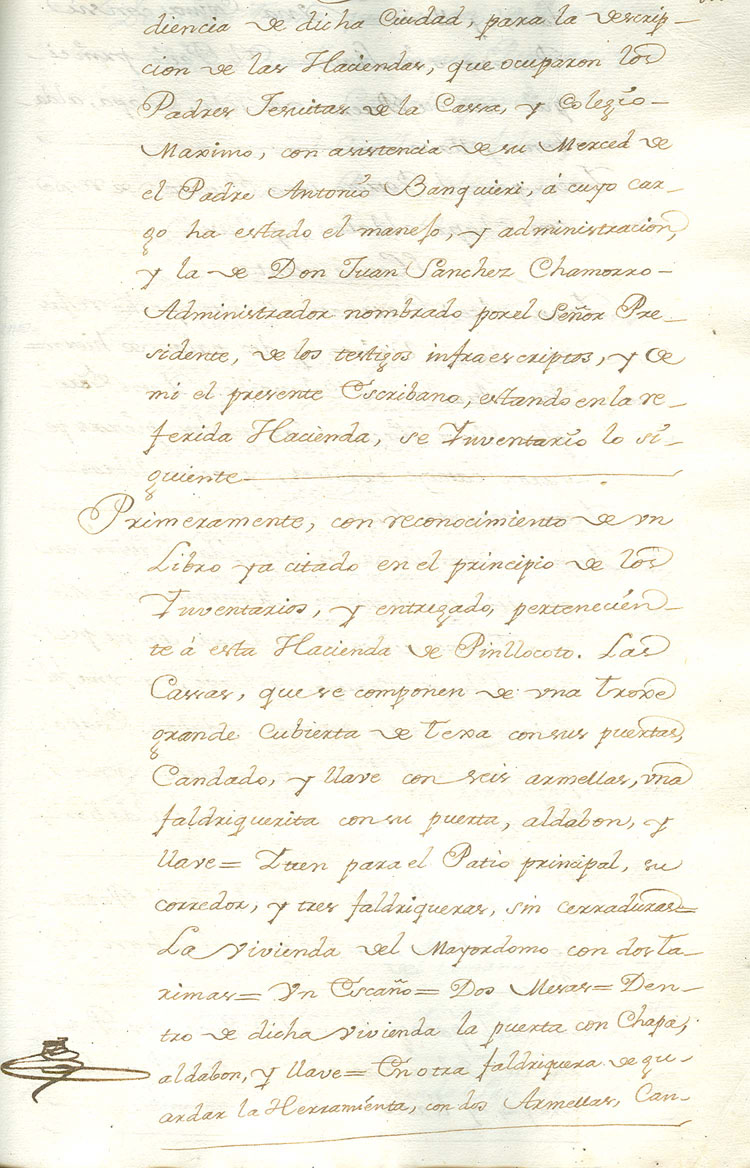 diencia de dicha Ciudad, para la descrip-
cion de las Haciendas, que ocuparon los
Padres Jesuitas de la Cassa, y Colegio
Maximo, con asistencia de su Merced de
el Padre Antonio Banquieri, á cuyo car-
go ha estado el manejo, y administracion,
y la de Don Juan Sanchez Chamorro
Administrador nombrado por el Señor Pre-
sidente, de los testigos infraescriptos, y de
mi el presente Escribano, estando en la re-
ferida Hacienda, se Inventarío lo si-
guiente
Primeramente, con reconocimiento de vn
Libro ya citado en el principio de los
Inventarios, y entregado, pertenecien-
te á esta Hacienda de Pinllocoto. Las
Cassas, que se componen de vna troxe
grande Cubierta de Texa con sus puertas,
Candado, y llave con seis armellas, vna
faldriquerita con su puerta, aldabon, y
llave= Iten para el Patio principal, su
corredor, y tres faldriqueras, sin cerraduras=
La vivienda del Mayordomo con dos ta-
rimas= Vn Escaño= Dos Mesas= Den-
tro de dicha vivienda la puerta con Chapa,
aldabon, y llave= En otra faldriquera de gu-
ardar la Herramienta, con dos Armellas, Can-